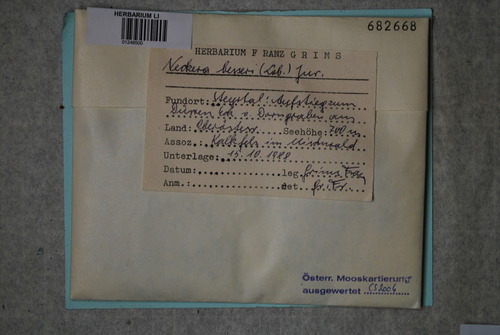 HERBARIUM LI
01248500
682668
HERBARIUM FRANZ GRIMS
Neckera besseri (Lob.) Jur.
Fundort: Steyrtal: Aufstieg zum
Land: Oberösterr. Seehöhe: 700 m
Assoz. Kalkfels im Mischwald
Unterlage: 15.10.1988
Datum: leg. Grims Franz
Anm.: det. Gr. Fr.
Österr. Mooskartierung
ausgewertet CS2006